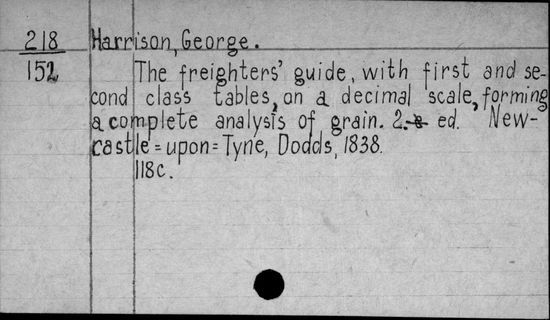 218 Harrison, George.
152 The freighters' guide, with first and se-
cond class tables, on a decimal scale, forming
a complete analysis of grain. 2. ed. New-
castle=upon=Tyne, Dodds, 1838.
118c.